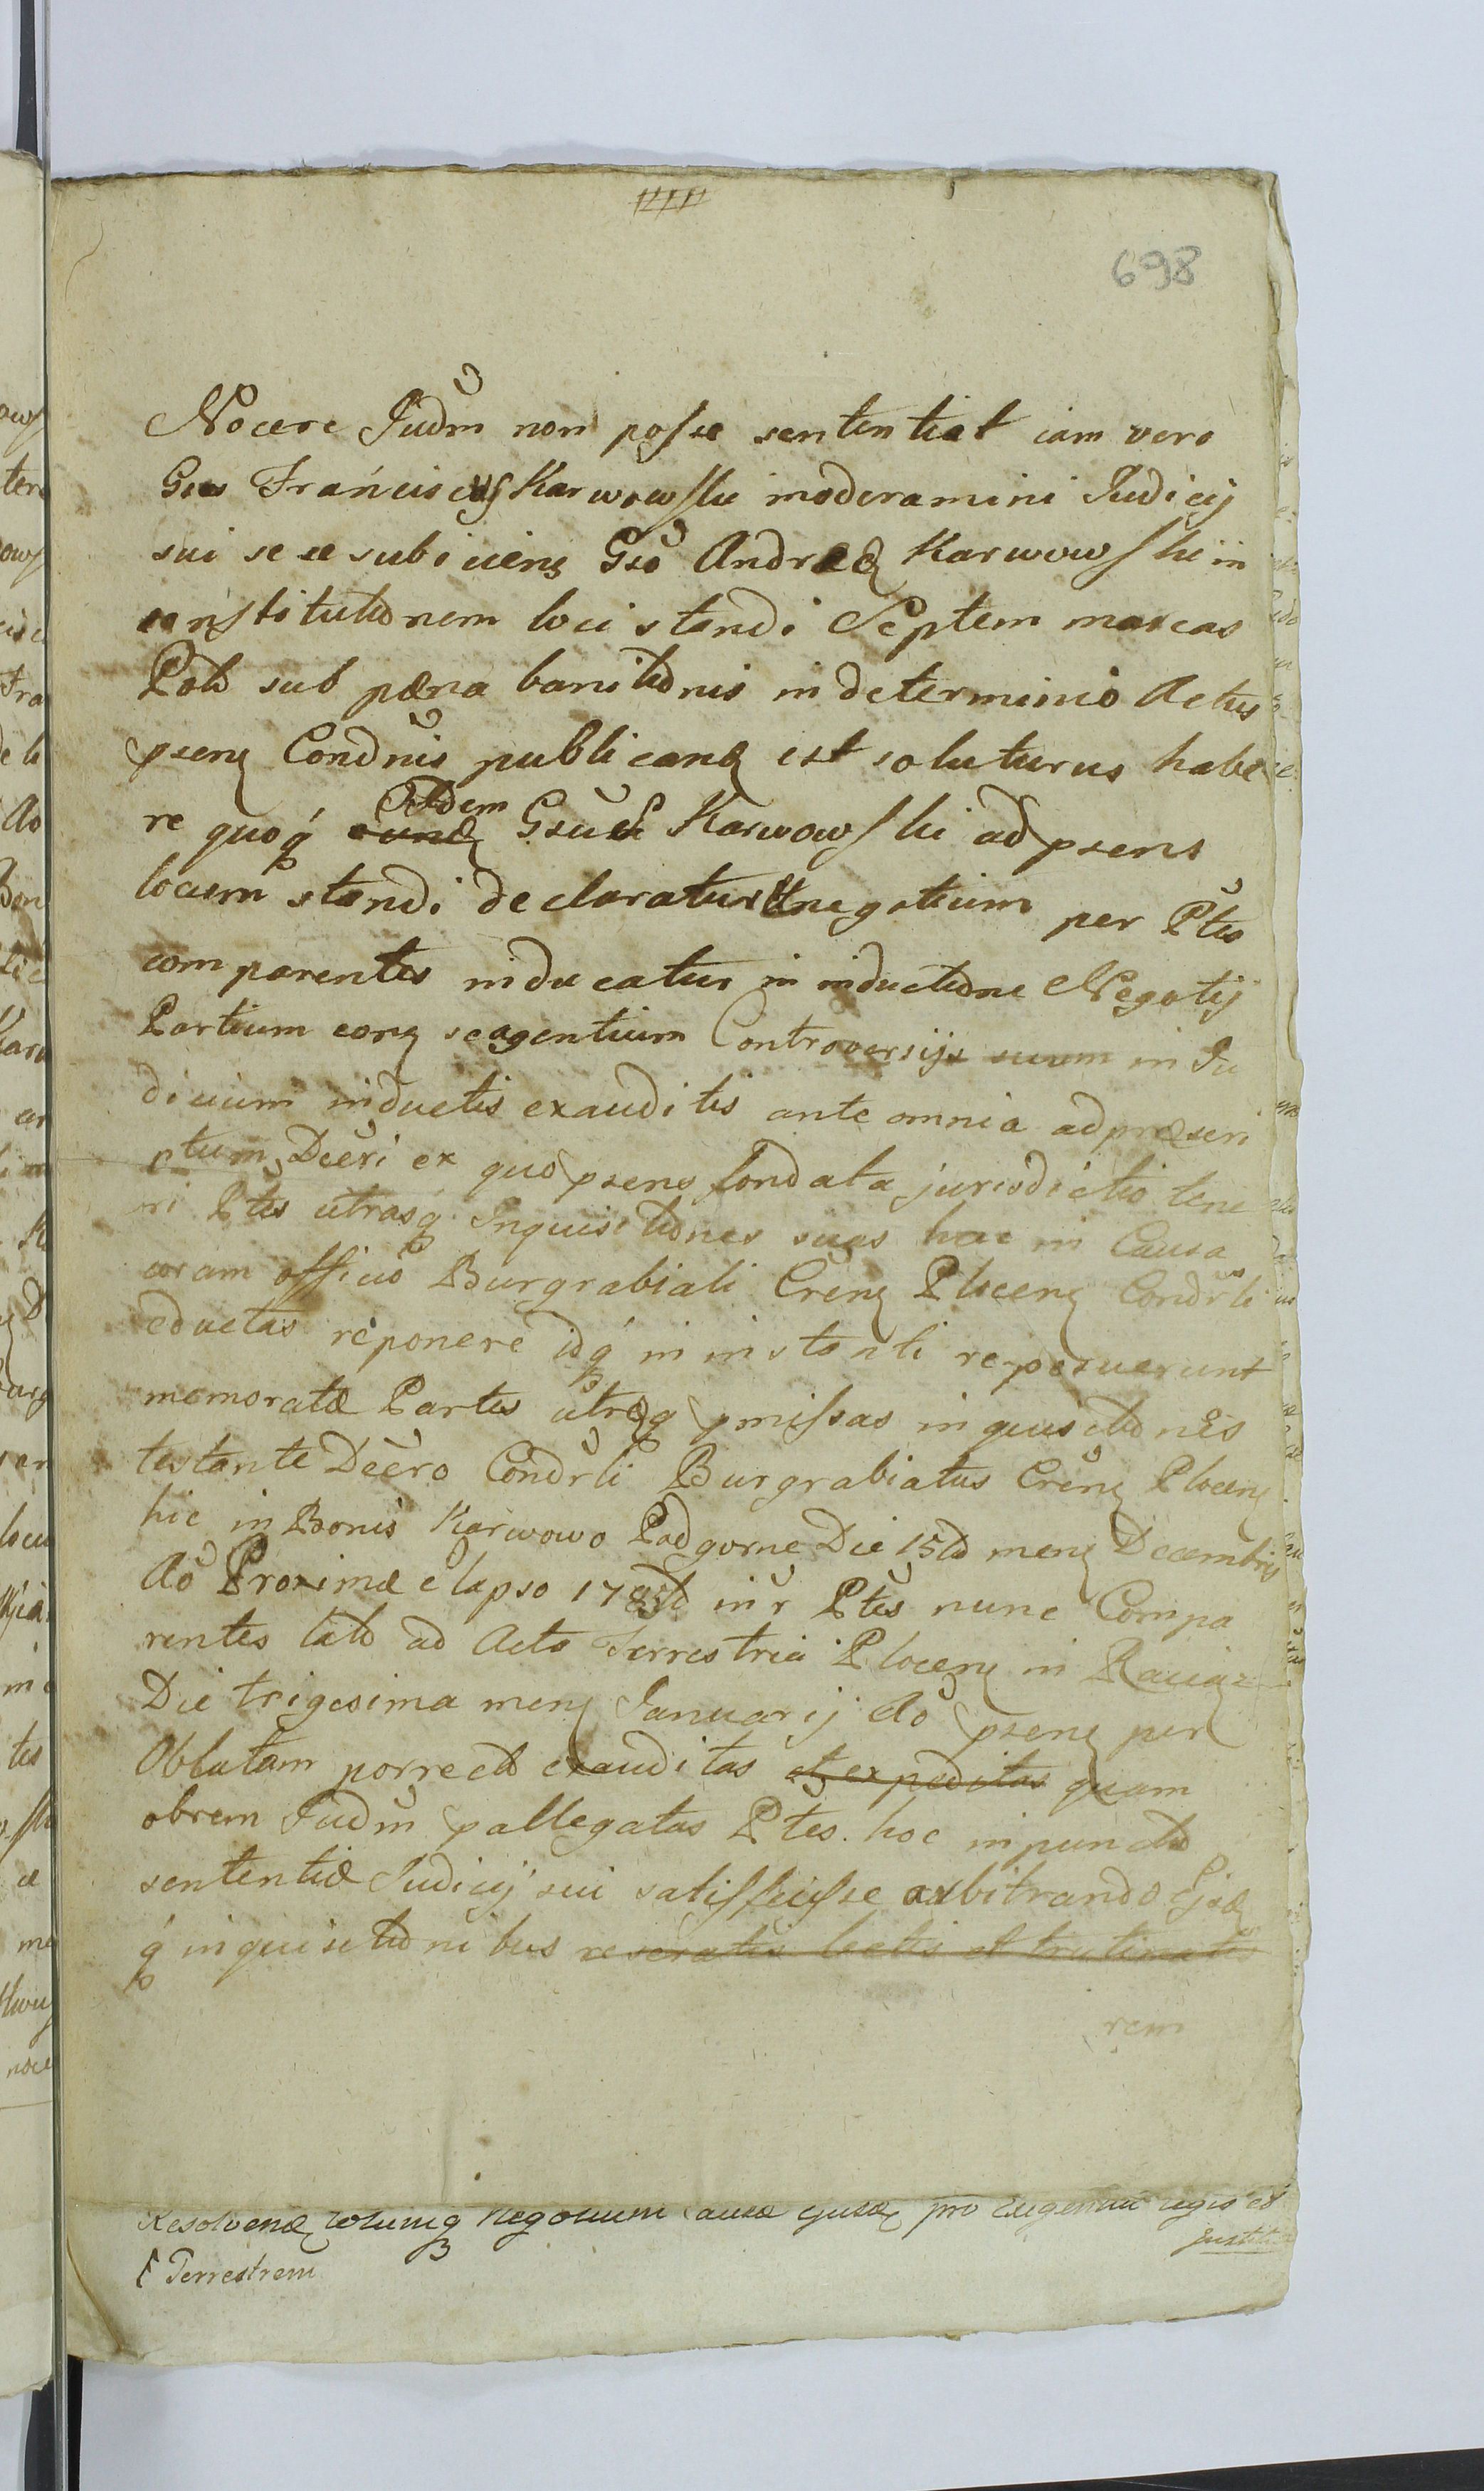 698
Nocere Judm̃ non posse sententiat iam vero
Gsus Franciscus Karwowski moderamini Judicij
sui sese subiiciens Gsõ Andreæ Karwowski in
constitutõnem loci standi Septem marcas
Polõ sub pæna banitõnis in determinio Actus
psens Condnĩs publicand est soluturus habe
re quoq́ Eundem Gsũ Karwowski ad psens
locum standi declaratur et negotium per Ptẽs
comparentes inducatur in inductõne Negotij
Partium coram se agentium Controversijs suum in Ju
dicium inductis exauditis ante omnia ad præscri
ptum Decr̃i ex quo psens fundata jurisdictio tene
ri Ptes utrasq́ Inquisitõnes suas hac in Causa
coram officio Burgrabiali Crens Plocens Condrl̃i
eductas reponere idq́ in instanti reposuerunt
memoratæ Partes utræq pmissas inquisitõnes
testante Decr̃o Condrl̃i Burgrabiatus Crẽns Plocens
hic in Bonis Karwowo Podgorne Die 15tõ mens Decembris
Aõ Proxime elapso 1785tõ int̃r Ptẽs nunc Compa
rentes latõ ad Acta Terrestria Plocens in Raciąz
Die trigesima mens Januarij Aõ psens per
Oblatam porrectõ exauditas et expeditas quam
obrem Judm̃ pallegatas Ptes. hoc in punctõ
sententiæ Judicij sui satisfecisse arbitrando Ejsd
q́ inquisitõnibus reseratis lectis et trutinatis
rem
Resolvend totumq negotium causæ ejusd pro exigentia legis et
Justitiæ
Terrestrem